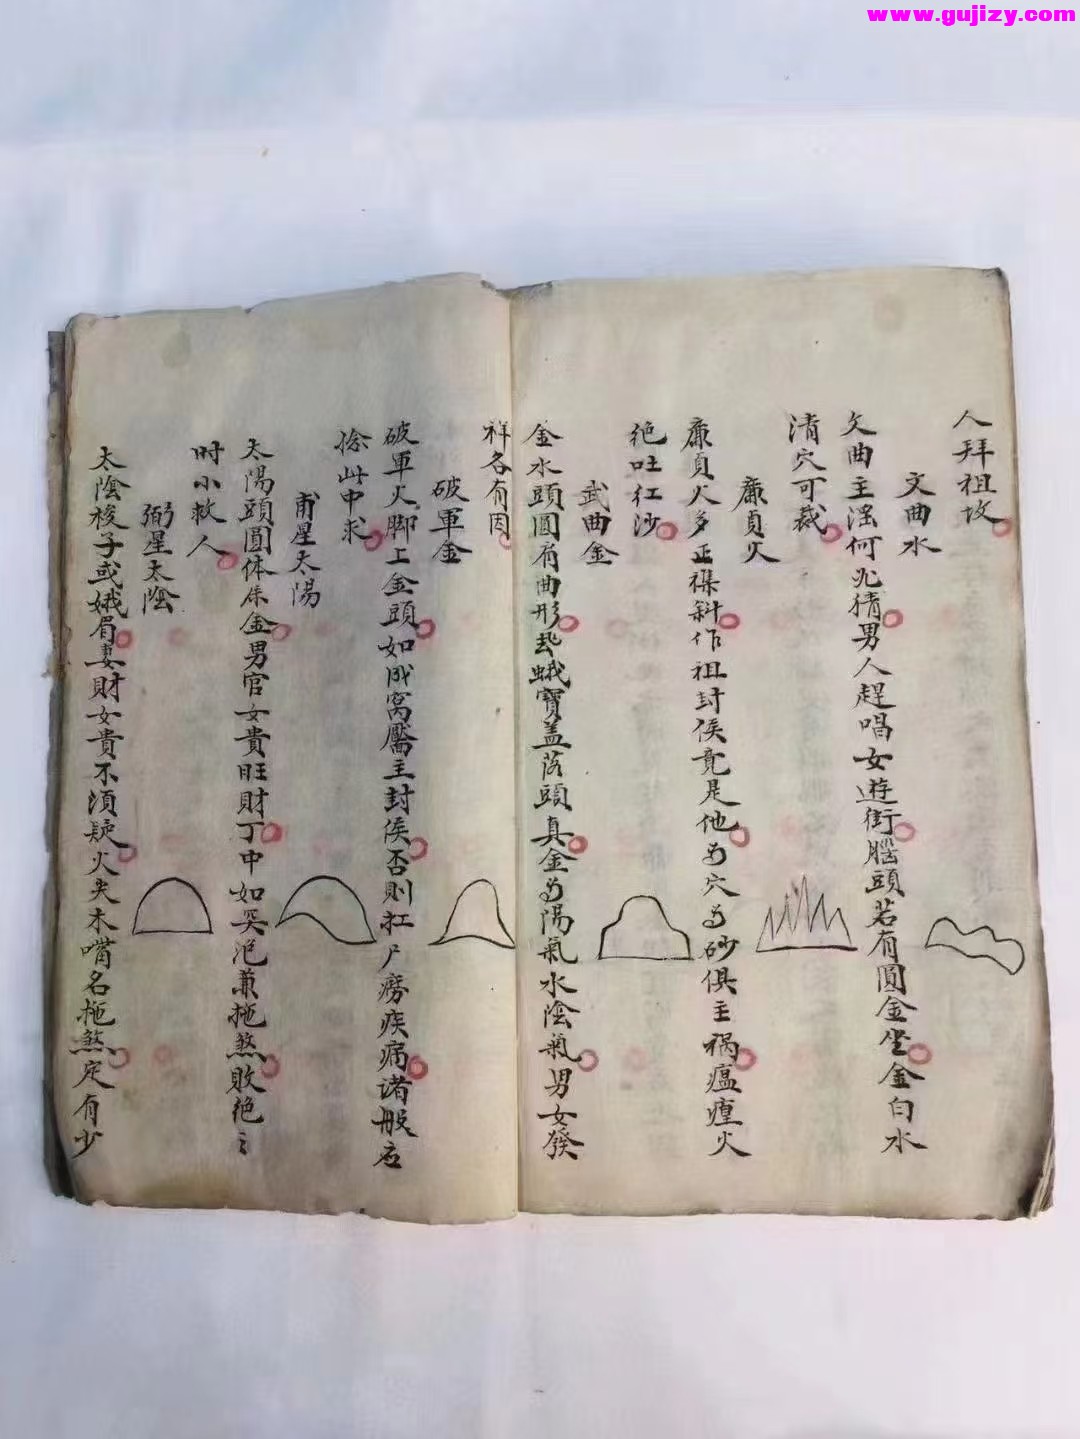 www.gujizy.com
人拜祖坟
文曲水
文曲主淫何必猜男人趕唱女遊街腦頭若有圓金坐金白水
清穴可裁
廉貞火
廉貞火多正禄斜作祖封侯竟是他为穴为砂俱主祸瘟瘽火
绝吐红沙
武曲金
金水頭圓肩曲形 蛾寶盖落頭真金为陽氣水陰氣男女發
祥各有因
破軍金
破軍火脚上金頭如成窝靨主封侯否則扛尸痨疾病诸般应
捻此中求
甫星太陽
太陽頭圓体 金男官女貴旺財丁中如 泡兼拖煞敗绝
时小救人
弼星太陰
太陰梭子或娥眉妻財女貴不須疑火尖木嘴名拖煞定有少